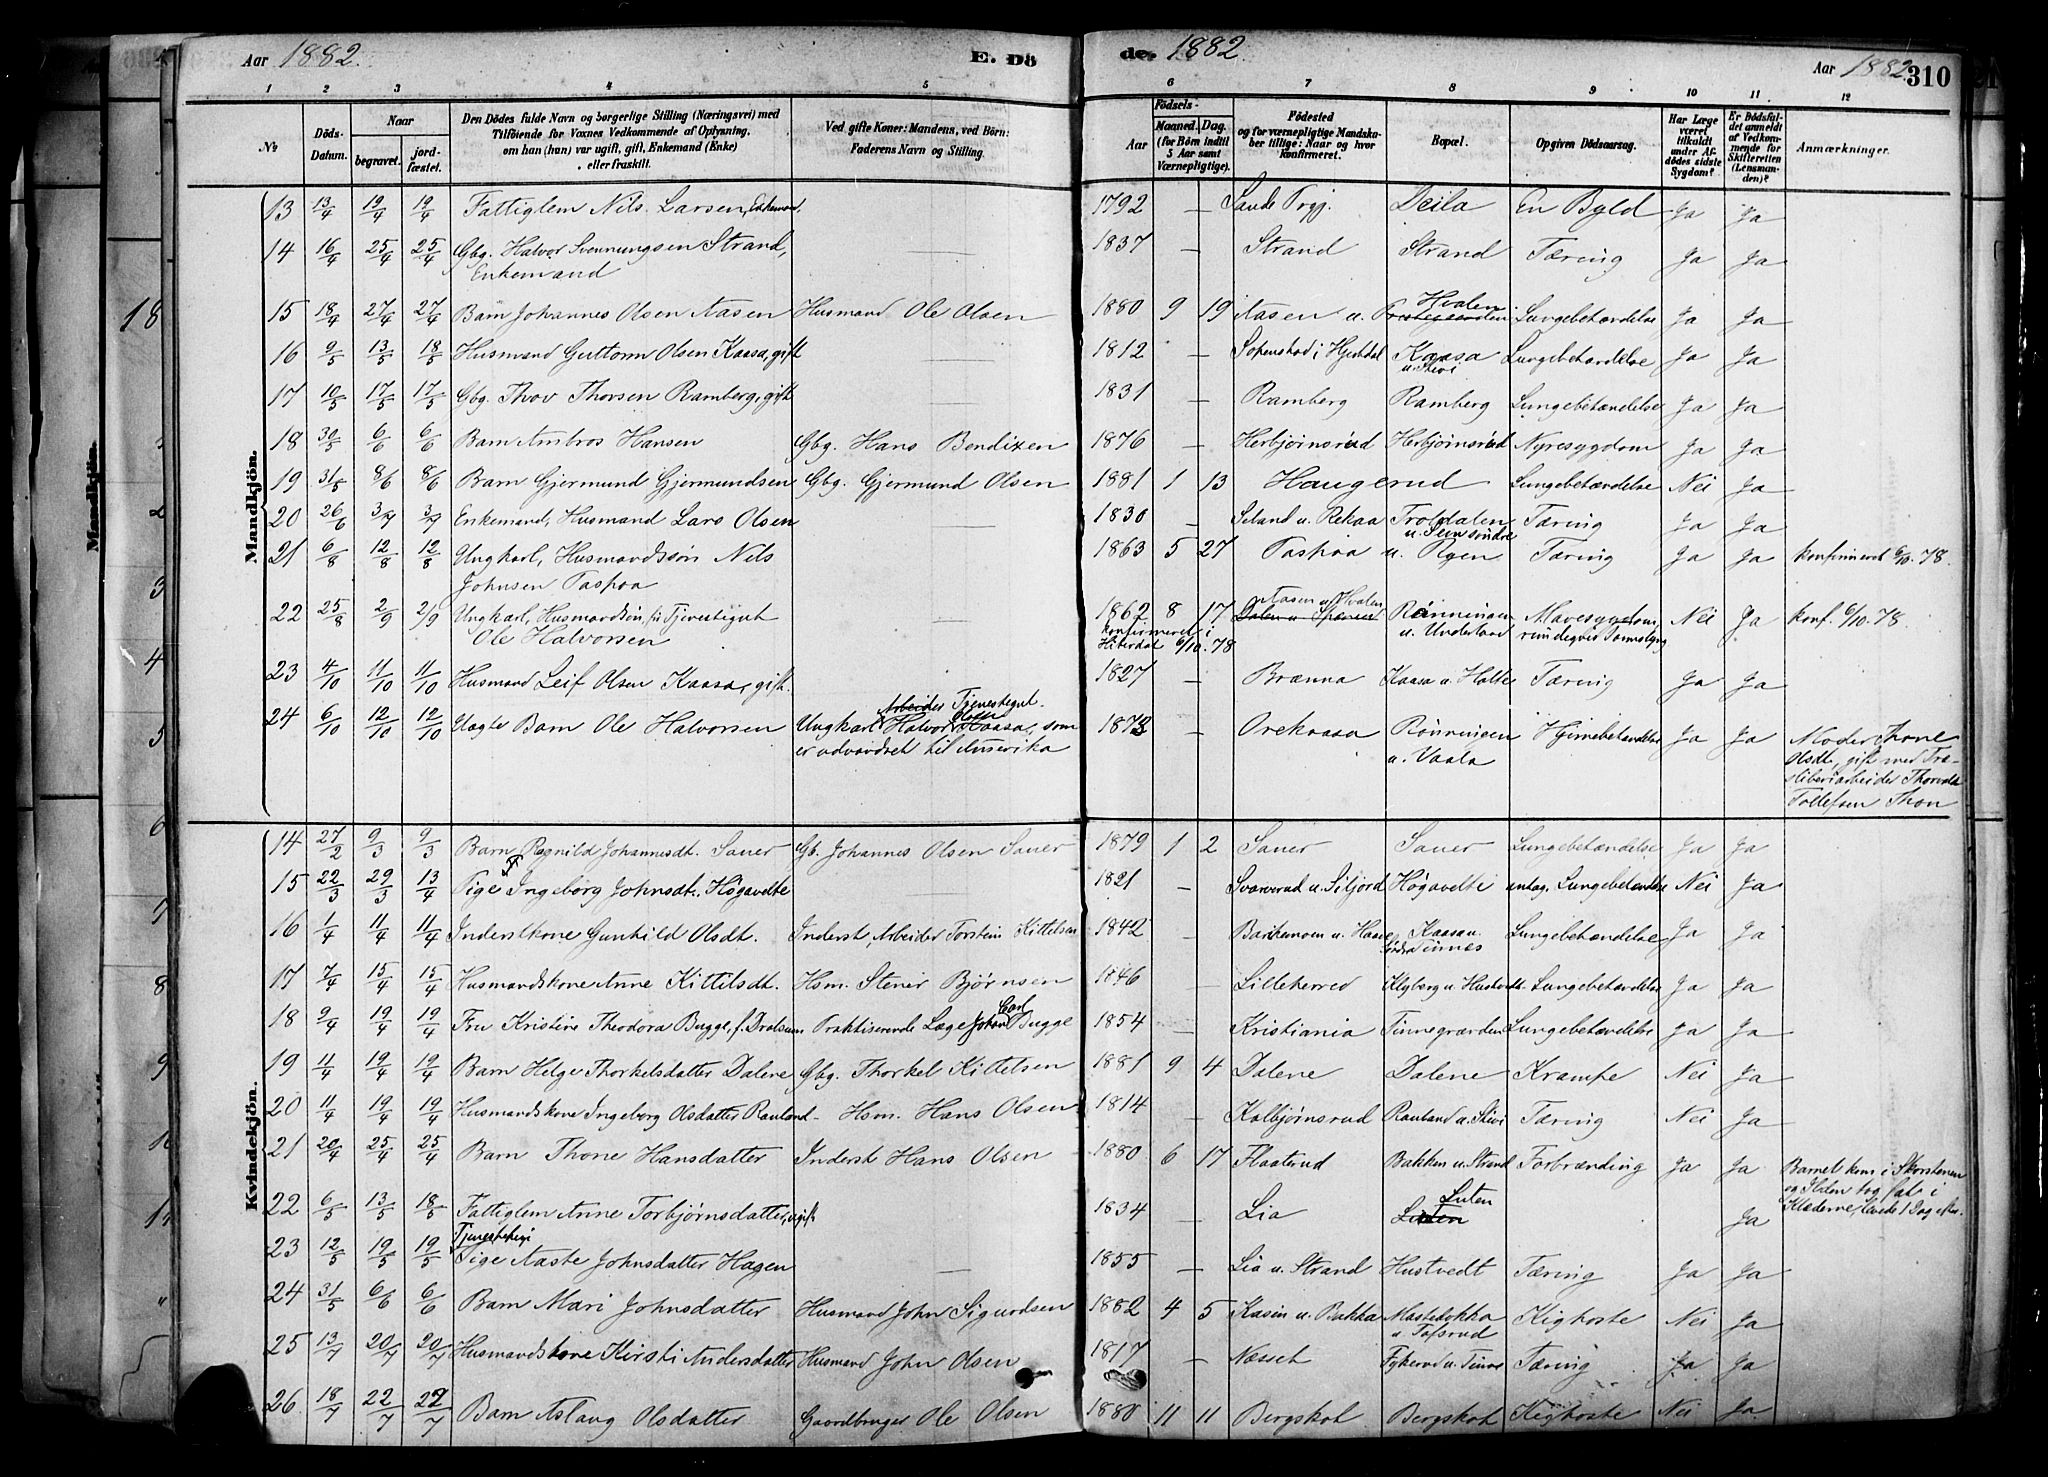 Aar 1882. E. Dö de. 1882. Aar 1882. 310
1 2 3 4 5 6 7 8 9 10 11 12
№ Döds-Datum. Naar begravet. jord-fæstet. Den Dödes fulde Navn og borgerlige Stilling (Næringsvei) med Tilföiende for Voxnes Vedkommende af Oplysning, om han (hun) var ugift, gift, Enkemand (Enke) eller fraskilt. Ved gifte Koner: Mandens, ved Börn: Faderens Navn og Stilling. Födsels- Aar Maaned. Dag. (for Börn indtil 5 Aar samt Værnepligtige). Födested og for værnepligtige Mandskaber tillige: Naar og hvor konfirmeret. Bopæl. Opgiven Dödsaarsag. Har Læge været tilkaldt under Afdödes sidste Sygdom? Er Dödsfaldet anmeldt af Vedkommende for Skifteretten (Lensmanden)? Anmærkninger.
Mandkjön.
13 13/4 19/4 19/4 Fattiglem Nils Larsen, Enkemand, 1792 — Sande Prgj. Deila En Byld Ja Ja
14 16/4 25/4 25/4 Gbg. Halvor Svennungsen Strand, — 1837 — Strand Strand Tæring Ja Ja
Enkemand
15 18/4 27/4 27/4 Barn Johannes Olsen Aasen Husmand Ole Olsen 1880 9 19 Aasen u. Hvalen Lungebetændelse Ja Ja
16 9/5 13/5 18/5 Husmand Guttorm Olsen Kaasa, gift — 1812 — i Hjertdal Kaasa Lungebetændelse Ja Ja
17 10/5 17/5 17/5 Gbg. Thov Thovsen Ramberg, gift — 1831 — Ramberg Ramberg Lungebetændelse Ja Ja
18 30/5 6/6 6/6 Barn Ambros Hansen Gbg. Hans Bendixen 1876 — Herbjørnsrud Herbjørnsrud Nyresygdom Ja Ja
19 31/5 8/6 8/6 Barn Gjermund Gjermundsen Gbg. Gjermund Olsen 1881 1 13 Haugerud Lungebetændelse Nei Ja
20 26/6 3/7 3/7 Enkemand, Husmand Lars Olsen — 1830 — Seland u. Rekaa Troldalen Tæring Ja Ja
21 6/8 12/8 12/8 Ungkarl, Husmandssøn Nils 1863 5 27 Taspaa u. Ryen Tæring Ja Ja konfirmeret 6/10. 78.
Johnsen Taspaa
22 25/8 2/9 2/9 Ungkarl, Husmandssøn, Tjenestegut 1862 8 17 Aasen u. Hvalen Rønningen Nei Ja konf. 6/10. 78.
Ole Halvorsen konfirmeret i Hiterdal 6/10. 78
23 4/10 11/10 11/10 Husmand Leif Olsen Kaasa, gift. 1827 — Brænna Kaasa u. Holte Tæring Ja Ja
24 6/10 12/10 12/10 Uægte Barn Ole Halvorsen Ungkarl Arbeider Tjenestegut Halvor Olsen Kaasa, som 1873 — Orekaasa Rønningen Hjernebetændelse Ja Ja Moder Thone
er udvandret til Amerika u. Vaala Olsdt., gift med Træ-
sliberiarbeider
Tollefsen Thon
Kvindekjön.
14 27/2 9/3 9/3 Barn Ragnild Johannesdt. Sauer Gb. Johannes Olsen Sauer 1879 1 2 Sauer Sauer Lungebetændelse Ja Ja
15 22/3 29/3 13/4 Pige Ingeborg Johnsdt. Høgavelte 1821 — Svarverud u. Siljord Høgavelte antag. Lungebetændelse Nei Ja
16 1/4 11/4 11/4 Inderstkone Gunhild Olsdt. Inderst, Arbeider Torstein Kittelsen 1842 — Kaasa u. Lungebetændelse Ja Ja
Tinnes
17 7/4 15/4 15/4 Husmandskone Anne Kittilsdt. Hsm. Stener Bjørnsen 1846 — Lilleherred Klyberg u. Hustvedt. Lungebetændelse Ja Ja
18 9/4 19/4 19/4 Fru Kristine Theodora Bugge, f. Dralsum Praktiserende Læge Johan Carl Bugge 1854 — Kristiania Tinnegrænden Lungebetændelse Ja Ja
19 11/4 19/4 19/4 Barn Helge Thorkelsdatter Dalene Gbg. Thorkel Kittelsen 1881 9 4 Dalene Dalene Krampe Nei Ja
20 11/4 19/4 19/4 Husmandskone Ingeborg Olsdatter Rauland Hsm. Hans Olsen 1814 — Kolbjørnsrud Rauland u. Skivi Tæring Nei Ja
21 20/4 25/4 25/4 Barn Thone Hansdatter Inderst Hans Olsen 1880 6 17 Flaaterud Bakken u. Strand Forbrænding Ja Ja Barnet kom i Skorstenen
og Ilden tog fat i
22 6/5 13/5 18/5 Fattiglem Anne Torbjørnsdatter, ugift 1834 — Lia Luten Ja Klæderne, levede 1 Dag efter.
23 12/5 19/5 19/5 Tjenestepige Pige Aaste Johnsdatter Hagen — 1855 — Lia u. Strand Hustvedt Tæring Ja Ja
24 31/5 6/6 6/6 Barn Mari Johnsdatter Husmand John Sigurdsen 1882 4 5 Kasin u. Bakka Kighoste Nei Ja
25 13/7 20/7 20/7 Husmandskone Kirsti Andersdatter Husmand John Olsen 1817 — Næsset Fykerud u. Tinne Tæring Ja Ja
26 18/7 22/7 22/7 Barn Aslaug Olsdatter Gaardbruger Ole Olsen 1880 11 11 Bergskot Bergskot Kighoste Nei Ja